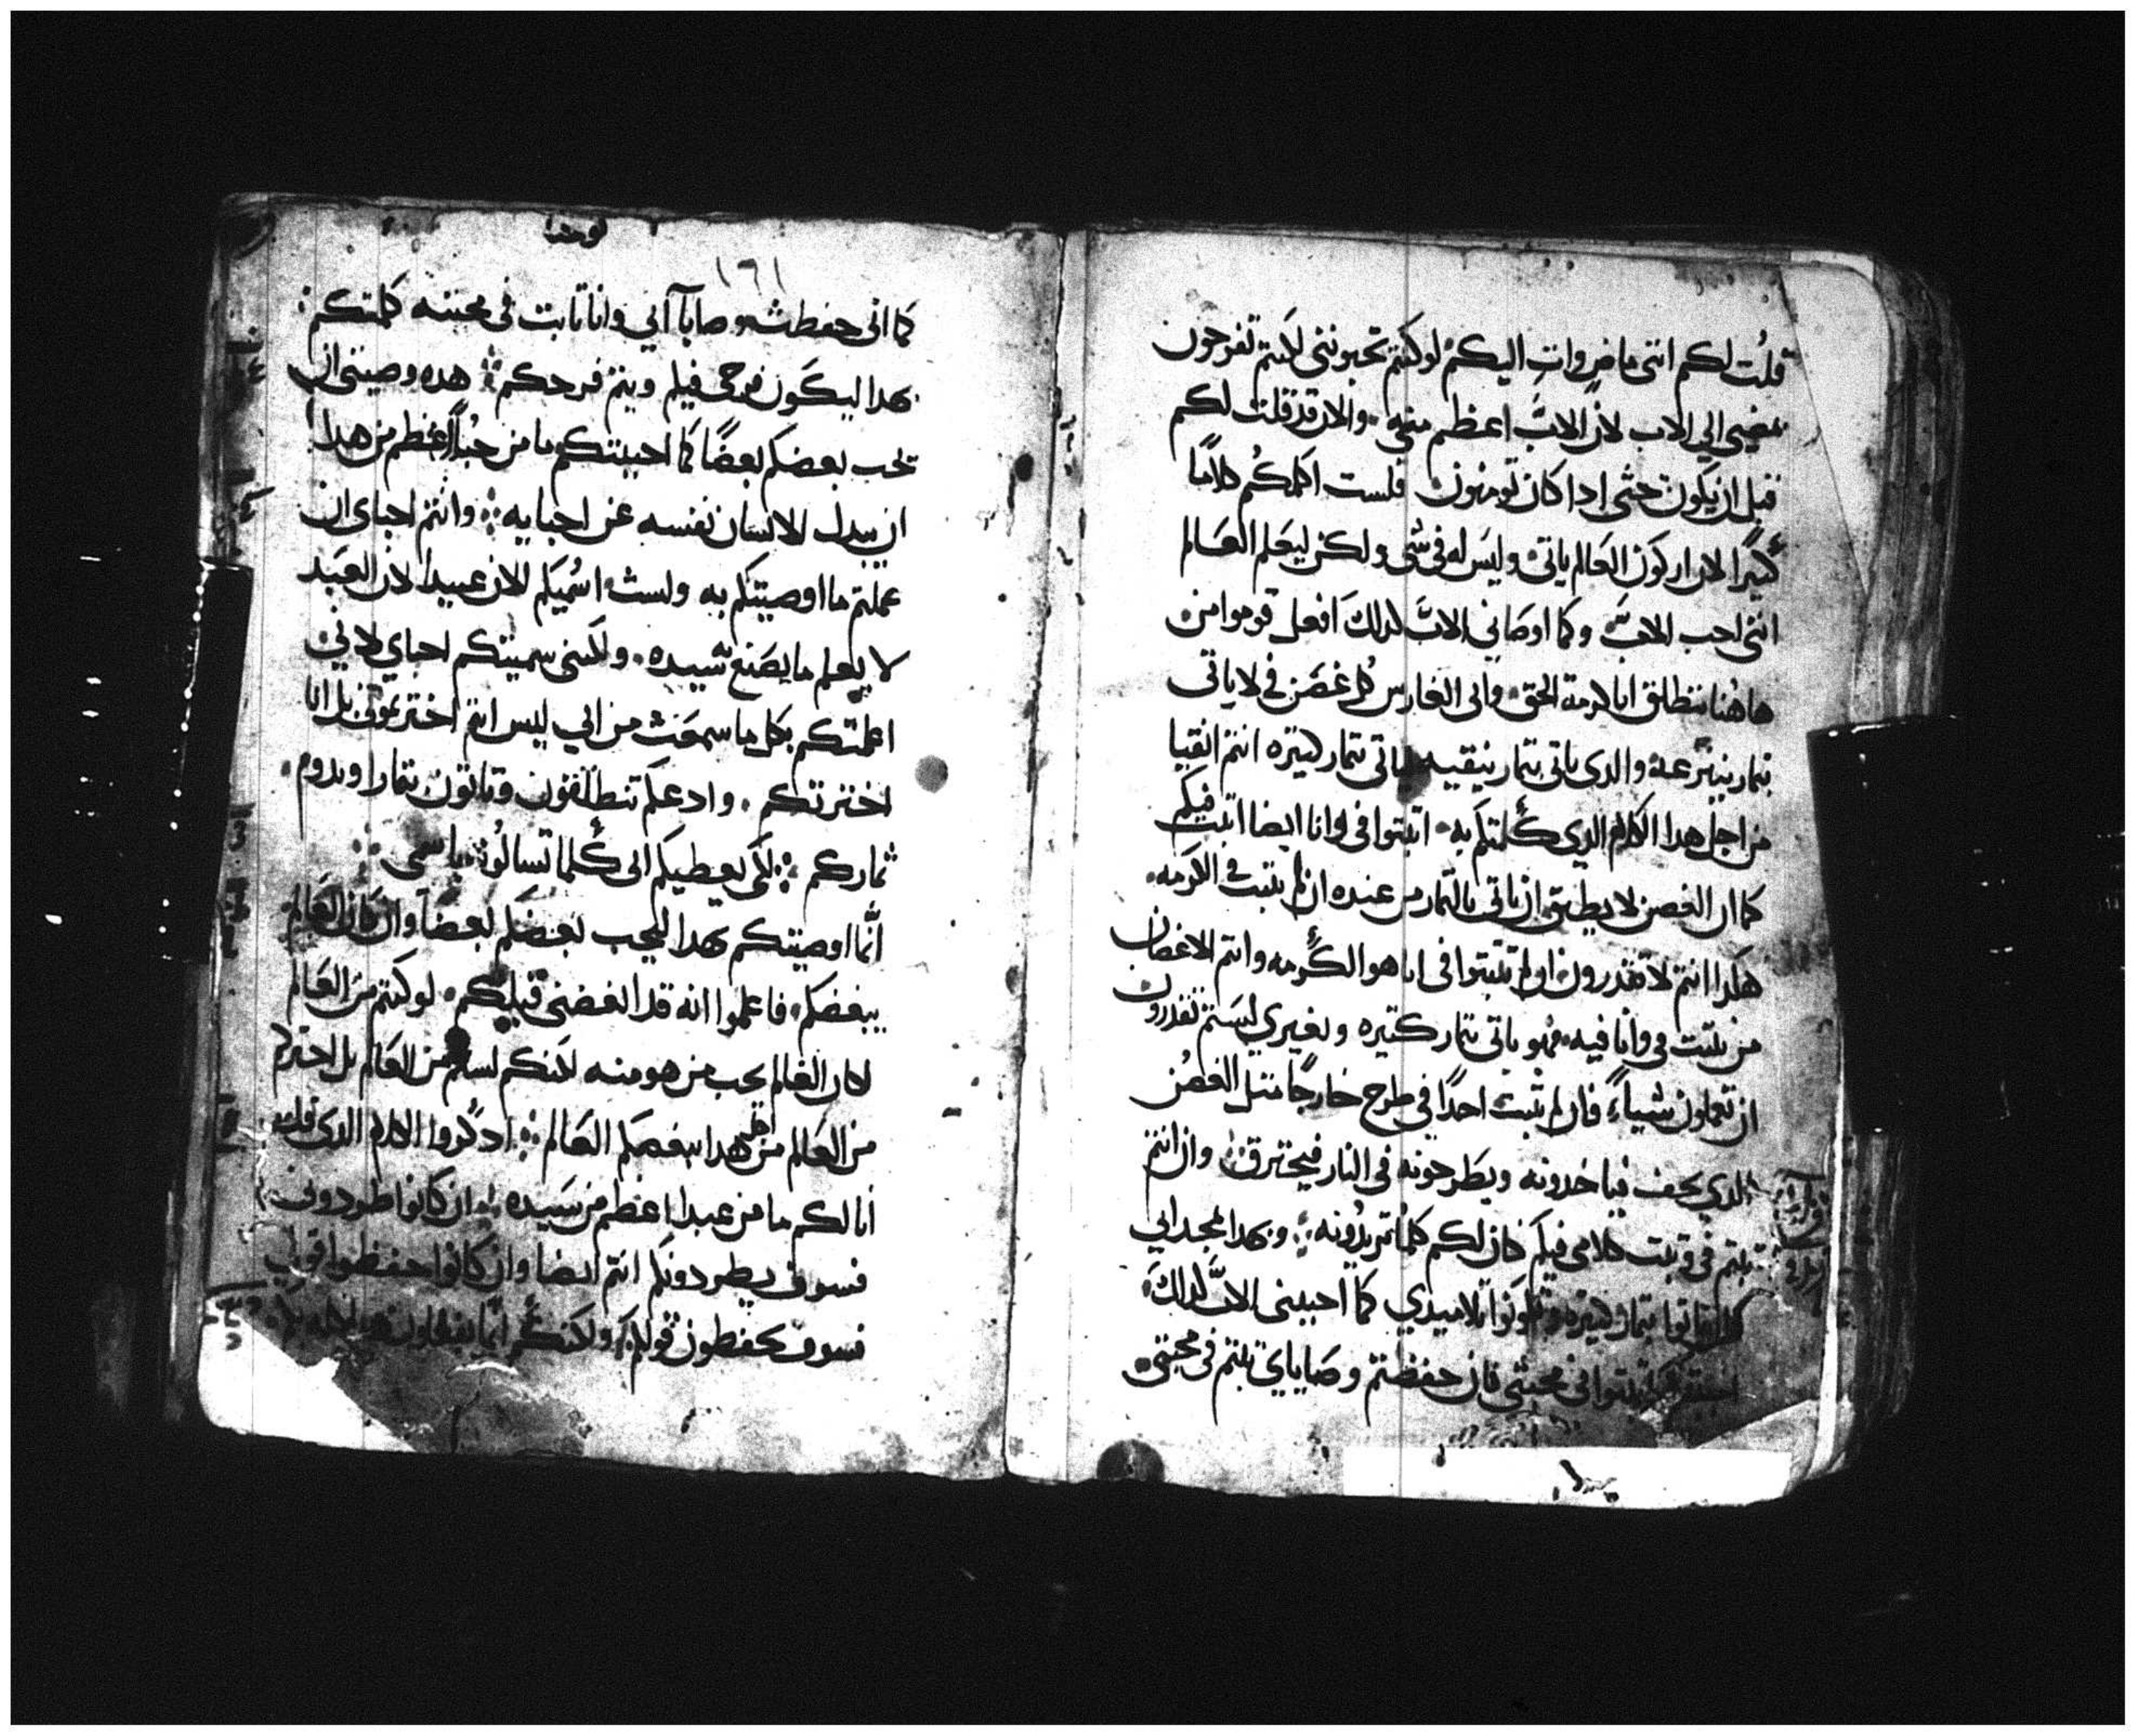 قلت لكم انني ماض وات اليكم لو كنتم تحبونني لكنتم تفرحون
بمضيي الي الاب لان الاب اعظم مني والان قد قلت لكم
قبل ان يكون حتى ادا كان تومنون فلست اكلمكم كلاما
كثيرا لان اركون العالم ياتي وليس له في شي ولكن ليعلم العالم
انني احب الاب وكما اوصاني الاب كدلك افعل قوموا من
هاهنا ننطلق انا كرمة الحق وابي الغارس كل غصن في لا ياتي
بتمار ينزعه والدي ياتي بتمار ينقيه لياتي بتمار كتيره انتم انقيا
من اجل هدا الكلام الدي كلمتكم به اتبتوا في وانا ايضا اتبت فيكم
كما ان الغصن لا يطيق ان ياتي بالتمار من عنده ان لم يتبت في الكرمه
هكدا انتم لا تقدرون ان لم تتبتوا في انا هو الكرمه وانتم الاغصان
من يتبت في وانا فيه فهو ياتي بتمار كتيره وبغيري لستم تقدرون
ان تعملون شيا فان لم يتبت احدا في طرح خارجا متل الغصن
الدي يجف فياخدونه ويطرحونه في النار فيحترق وان انتم
تبتم في وتبت كلامي فيكم كان لكم كلما تريدونه وبهدا يمجد ابي
ان تاتوا بتمار كتيره وتكونوا تلاميدي كما احببني الاب كدلك
احببتكم اتبتوا في محبتي فان حفظتم وصاياي تبتم في محبتي
١٦١
كما اني حفظت وصايا ابي وانا تابت في محبته كلمتكم
بهدا ليكون فرحي فيكم ويتم فرحكم هده وصيتي ان
يحب بعضكم بعضا كما احببتكم ما من حب اعظم من هدا
ان يبدل الانسان نفسه عن احبايه وانتم احباي ان
عملتم ما اوصيتكم به ولست اسميكم الان عبيدا لان العبد
لا يعلم ما يصنع سيده ولكني سميتكم احباي لاني
اعلمتكم بكل ما سمعت من ابي ليس انتم اخترتموني بل انا
اخترتكم وادعكم تنطلقون وتاتون بتمار ويدوم
تماركم لكي يعطيكم ابي كلما تسالون باسمي
انما اوصيتكم بهدا ليحب بعضكم بعضا وان كان العالم
يبغضكم فاعلموا انه قد ابغضني قبلكم لو كنتم من العالم
لكان العالم يحب من هو منه لكنكم لستم من العالم بل اخترتكم
من العالم من اجل هدا يبغضكم العالم ادكروا الكلام الدي قلت
انا لكم ما من عبد اعظم من سيده ان كانوا طردوني
فسوف يطردونكم انتم ايضا وان كانوا حفظوا قولي
فسوف يحفظون قولكم ولكنكم انما يفعلون